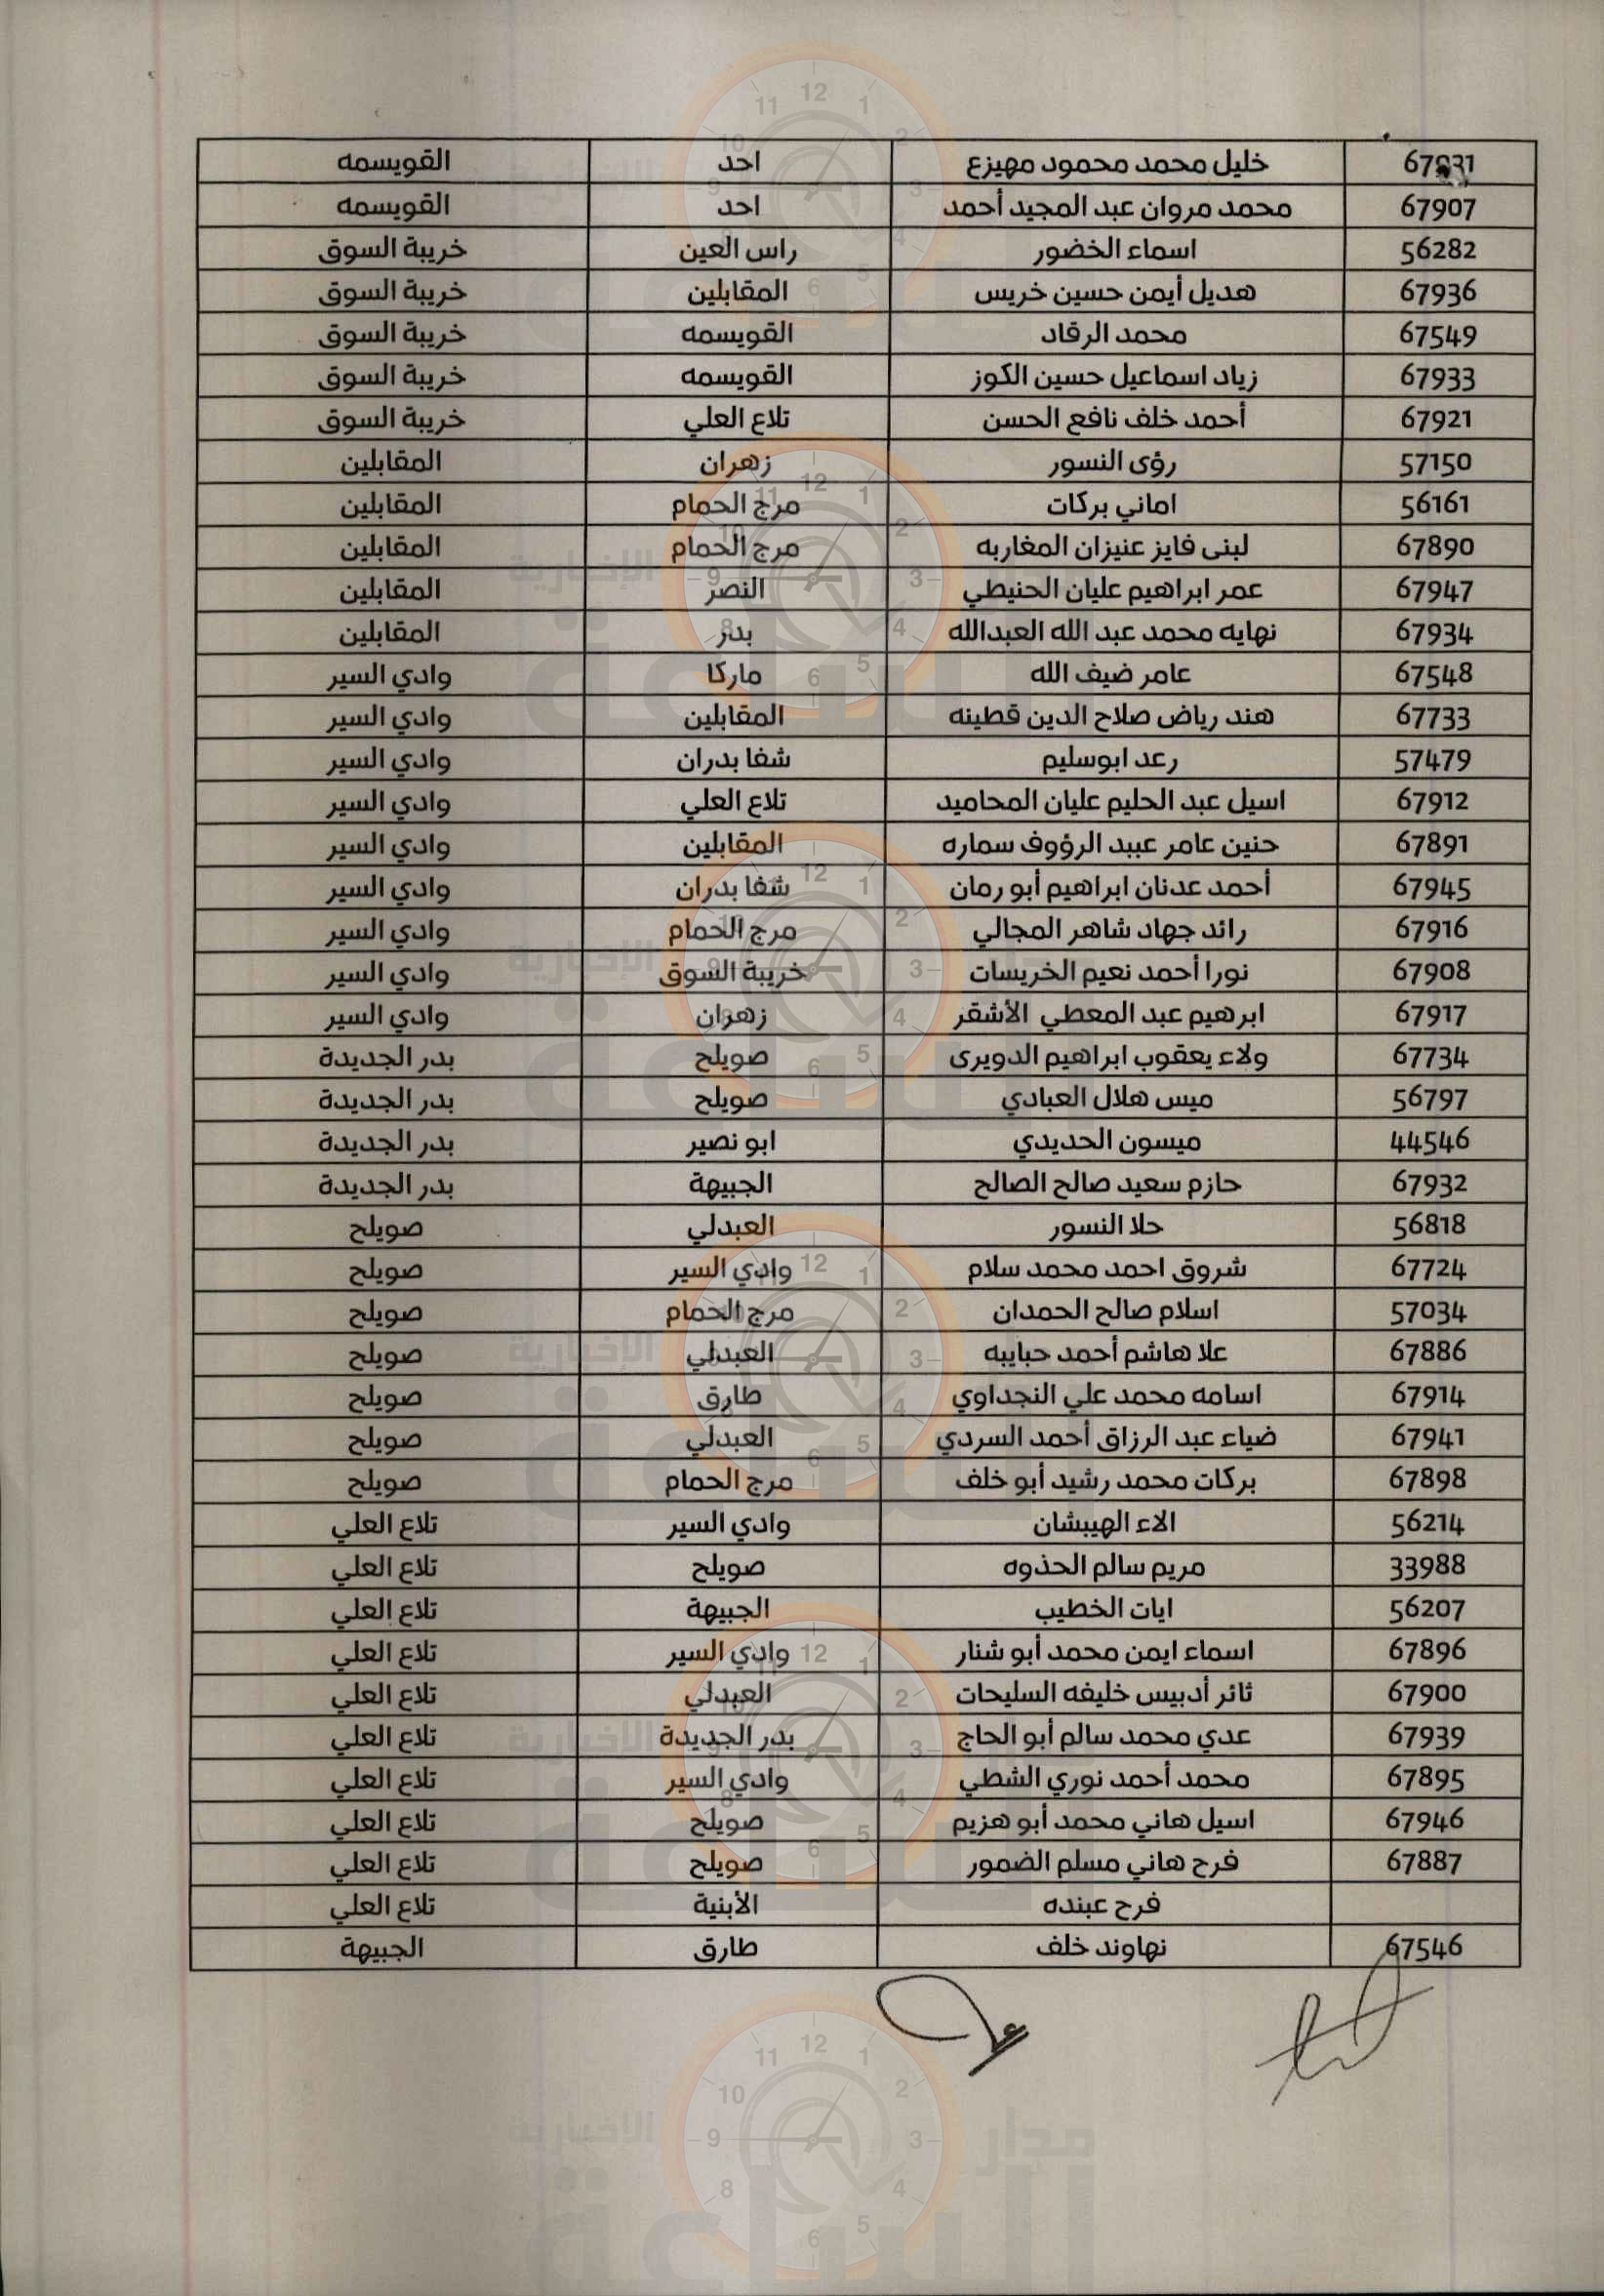 67931 خليل محمد محمود مهيزع احد القويسمه
67907 محمد مروان عبد المجيد أحمد احد القويسمه
56282 اسماء الخضور راس العين خريبة السوق
67936 هديل أيمن حسين خريس المقابلين خريبة السوق
67549 محمد الرقاد القويسمه خريبة السوق
67933 زياد اسماعيل حسين الكوز القويسمه خريبة السوق
67921 أحمد خلف نافع الحسن تلاع العلي خريبة السوق
57150 رؤى النسور زهران المقابلين
56161 اماني بركات مرج الحمام المقابلين
67890 لبنى فايز عنيزان المغاربه مرج الحمام المقابلين
67947 عمر ابراهيم عليان الحنيطي النصر المقابلين
67934 نهايه محمد عبد الله العبدالله بدر المقابلين
67548 عامر ضيف الله ماركا وادي السير
67733 هند رياض صلاح الدين قطينه المقابلين وادي السير
57479 رعد ابوسليم شفا بدران وادي السير
67912 اسيل عبد الحليم عليان المحاميد تلاع العلي وادي السير
67891 حنين عامر عبيد الرؤوف سماره المقابلين وادي السير
67945 أحمد عدنان ابراهيم أبو رمان شفا بدران وادي السير
67916 رائد جهاد شاهر المجالي مرج الحمام وادي السير
67908 نورا أحمد نعيم الخريسات خريبة السوق وادي السير
67917 ابرهيم عبد المعطي الأشقر زهران وادي السير
67734 ولاء يعقوب ابراهيم الدويرى صويلح بدر الجديدة
56797 ميس هلال العبادي صويلح بدر الجديدة
44546 ميسون الحديدي ابو نصير بدر الجديدة
67932 حازم سعيد صالح الصالح الجبيهة بدر الجديدة
56818 حلا النسور العبدلي صويلح
67724 شروق احمد محمد سلام وادي السير صويلح
57034 اسلام صالح الحمدان مرج الحمام صويلح
67886 علا هاشم أحمد حبايبه العبدلي صويلح
67914 اسامه محمد علي النجداوي طارق صويلح
67941 ضياء عبد الرزاق أحمد السردي العبدلي صويلح
67898 بركات محمد رشيد أبو خلف مرج الحمام صويلح
56214 الاء الهيبشان وادي السير تلاع العلي
33988 مريم سالم الحذوه صويلح تلاع العلي
56207 ايات الخطيب الجبيهة تلاع العلي
67896 اسماء ايمن محمد أبو شنار وادي السير تلاع العلي
67900 ثائر أدبيس خليفه السليحات العبدلي تلاع العلي
67939 عدي محمد سالم أبو الحاج بدر الجديدة تلاع العلي
67895 محمد أحمد نوري الشطي وادي السير تلاع العلي
67946 اسيل هاني محمد أبو هزيم صويلح تلاع العلي
67887 فرح هاني مسلم الضمور صويلح تلاع العلي
فرح عبنده الأبنية تلاع العلي
67546 نهاوند خلف طارق الجبيهة
مدار الساعة الإخبارية